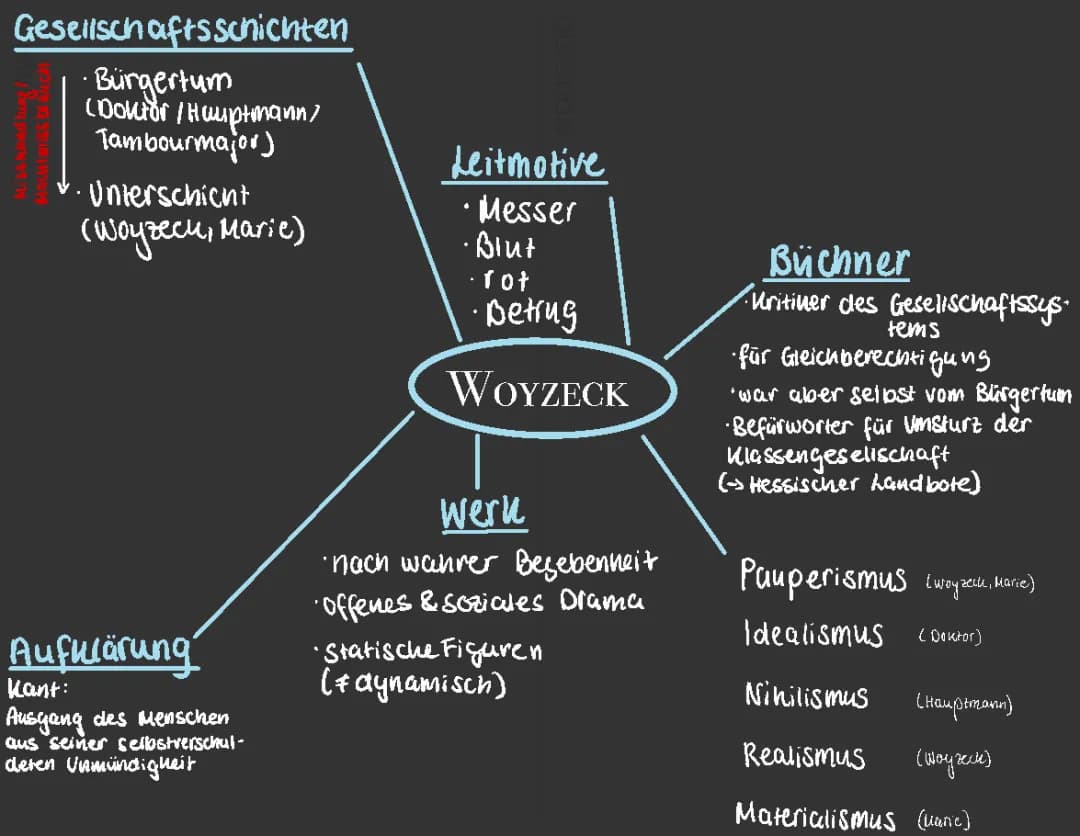 Gesellschaftsschichten
· Bürgertum
(Doktor / Hauptmann /
Tambourmajor)
· Unterschicht
(Woyzeck, Marie)
Machtmissbrauch
Leitmotive
· Messer
· Blut
· rot
· Betrug
Büchner
· Kritiker des Gesellschaftssys-
tems
· für Gleichberechtigung
· war aber selbst vom Bürgertum
· Befürworter für Umsturz der
Klassengesellschaft
(→ Hessischer Landbote)
WOYZECK
Werk
· nach wahrer Begebenheit
· offenes & soziales Drama
· statische Figuren
(≠ dynamisch)
Aufklärung
Kant:
Ausgang des Menschen
aus seiner selbstverschul-
deten Unmündigkeit
Pauperismus (Woyzeck, Marie)
Idealismus (Doktor)
Nihilismus (Hauptmann)
Realismus (Woyzeck)
Materialismus (Marie)